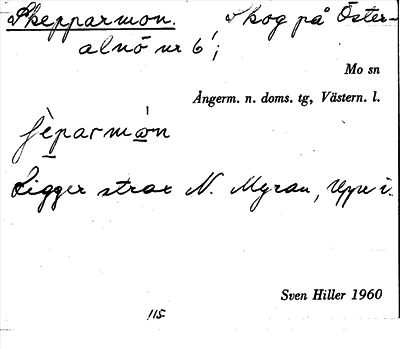 Skepparmon. Skog på Öster-
alnö nr 6¹;
Mo sn
Ångerm. n. doms. tg, Västern. l.
ʃèparmòn
Ligger strax N. Myran, uppe i.
Sven Hiller 1960
115.